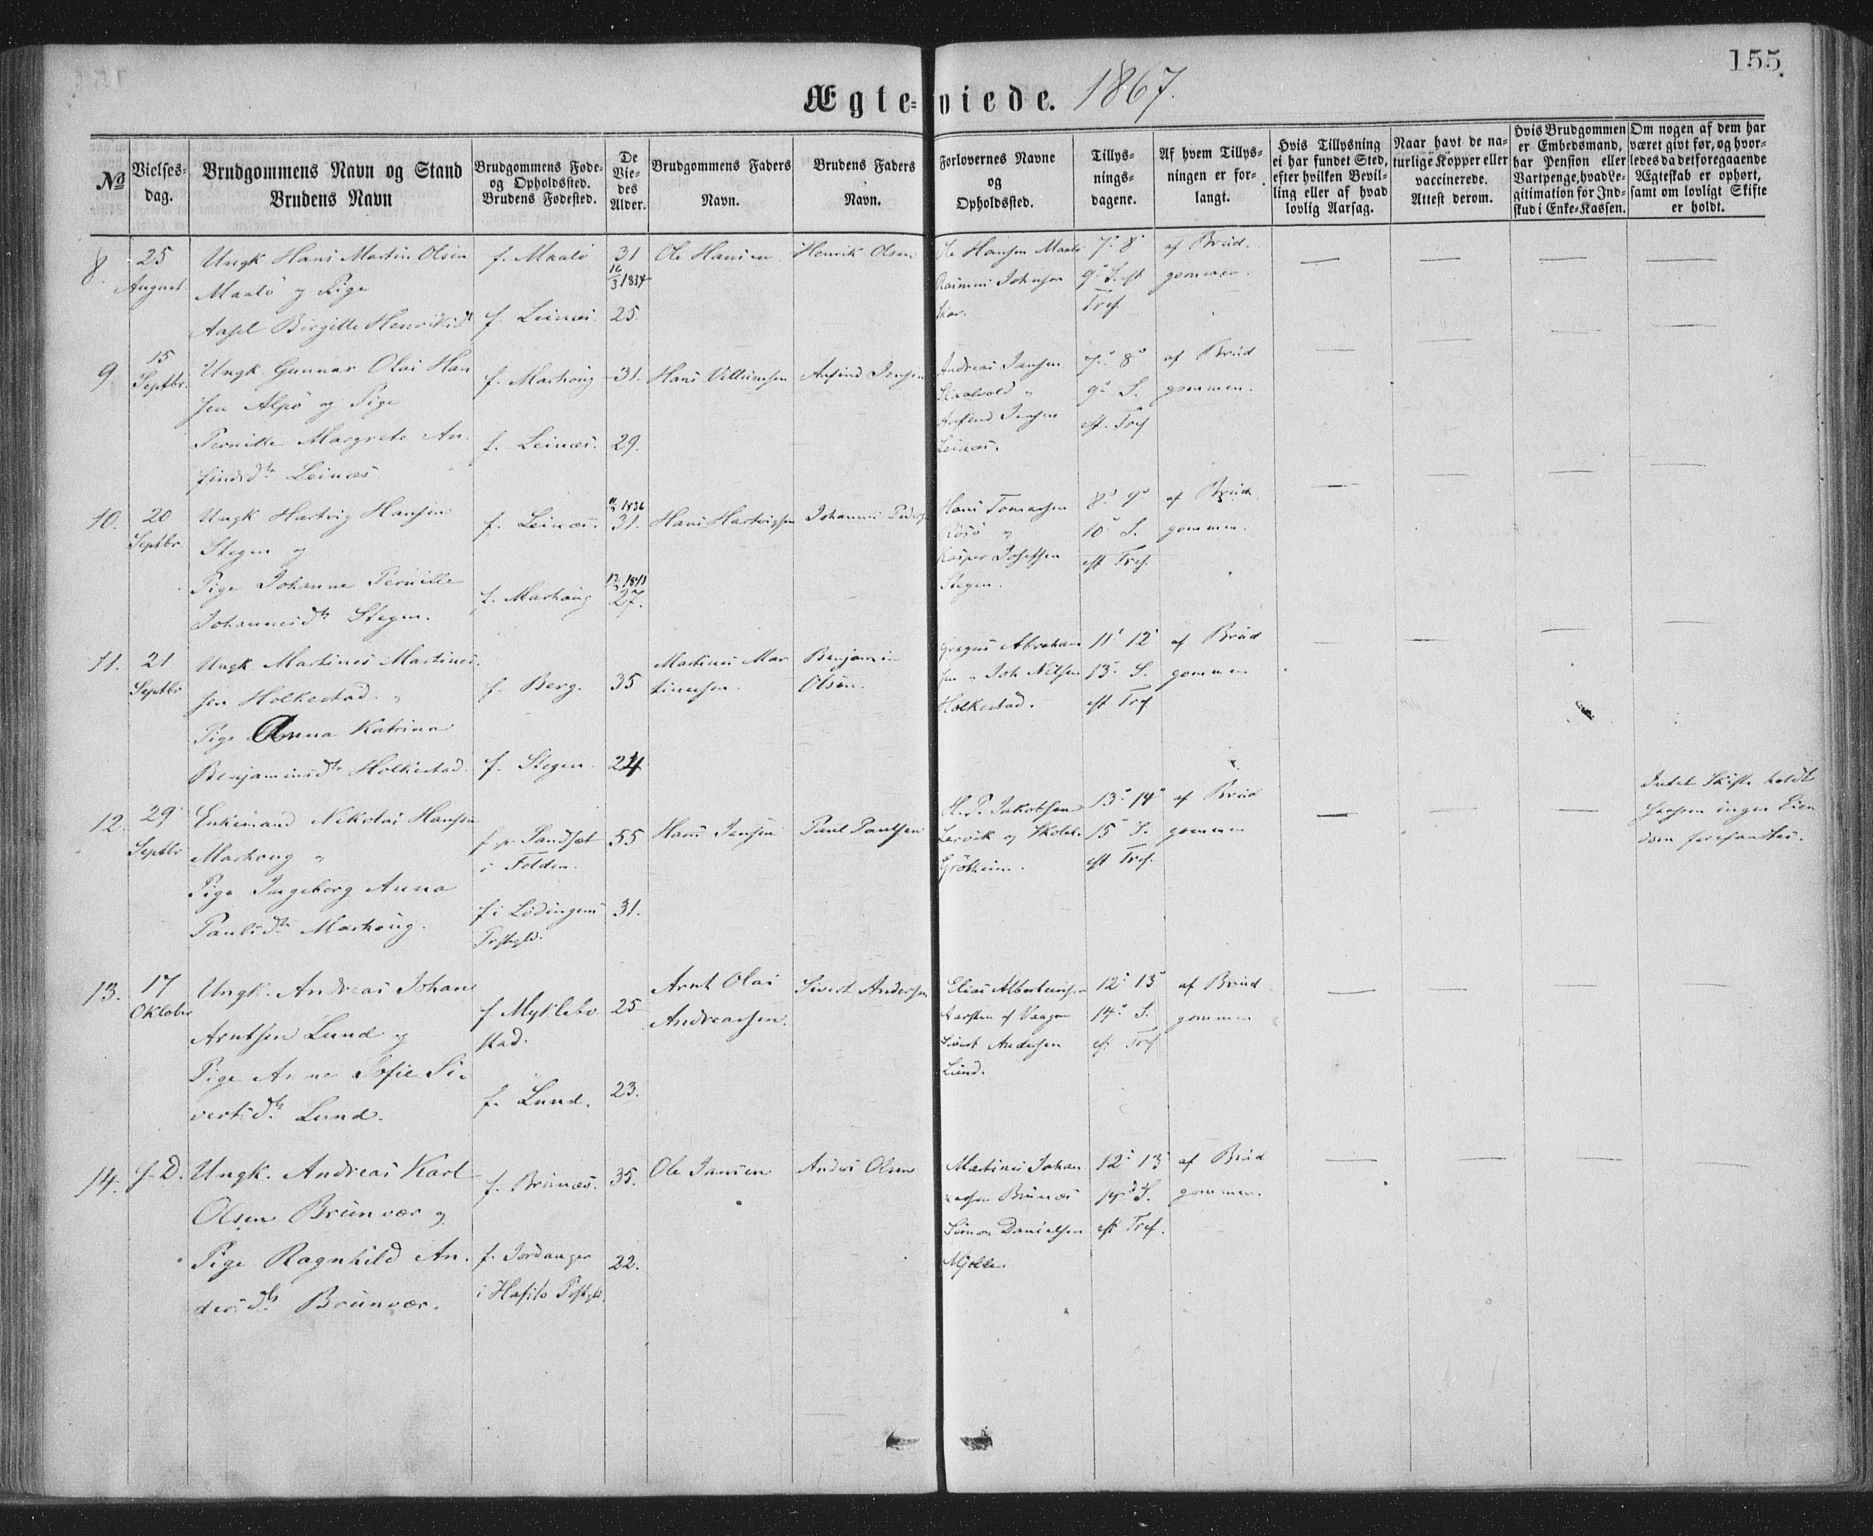 155.
Ægte-viede. 1867.
No
Vielses-
dag.
Brudgommens Navn og Stand
Brudens Navn
Brudgommens Føde-
og Opholdssted.
Brudens Fødested.
De
Vie-
des
Alder.
Brudgommens Faders
Navn.
Brudens Faders
Navn.
Forlovernes Navne
og
Opholdssted.
Tillys-
nings-
dagene.
Af hvem Tillys-
ningen er for-
langt.
Hvis Tillysning
ei har fundet Sted,
efter hvilken Bevil-
ling eller af hvad
lovlig Aarsag.
Naar havt de na-
turlige Kopper eller
vaccinerede.
Attest derom.
Hvis Brudgommen
er Embedsmand,
har Pension eller
Vartpenge, hvad Le-
gitimation for Ind-
skud i Enke-Kassen.
Om nogen af dem har
været givt før, og hvor-
ledes da det foregaaende
Ægteskab er ophørt,
samt om lovligt Skifte
er holdt.
8.
25
August
Ungk Hans Martin Olsen
Maalö og Pige
Birgitte
f. Maalö
f. Leines
31
16/3 1834
25.
Ole Hansen
Henrik Olsen
Ole Hansen Maalö
7. 8
9. S. eft
Tref.
af Brud.
gommen.
9
15
Septbr.
Ungk. Gunnar Olai Han
sen Alpö og Pige
Pernille Margrete An.
findsdtr Leines
f. Marhoug
f. Leines.
31.
29.
Hans Villumsen
Anfind Jensen
Andreas Jansen
Skaalvold
Anfind Jensen
Leines.
7. 8
9. S.
eft. Tref
af Brud
gommen.
10.
20
Septbr
Ungk Hartvig Hansen
Stegen og
Pige Johanne Pernille
Johannesdtr Stegen.
f. Leines.
f. Marhoug
1836
31.
1841
27.
Hans Hartvigsen
Johannes
Hans Tomassen
Rösö og
Kasper Josefsen
Stegen.
8. 9
10. S.
eft Tref.
af Brud
gommen.
11.
21
Septbr
Ungk Martines Martines
sen Holkestad.
Pige Anna Katrina
Benjaminsdtr Holkestad.
f. Berg.
f. Stegen.
35
24
Martines Mar
tinessen.
Benjamin
Olsen.
Abraham
sen Joh Nilsen
Holkestad.
11. 12
13. S.
eft Tref
af Brud
gommen
12.
29
Septbr
Enkemand Nikolai Hansen
Marhoug
Pige Ingeborg Anna
Paulsdtr Marhoug.
f p. Sandset
i Folden.
f i Lödingens
Prstgld.
55
31.
Hans Jansen
Paul Paulsen
H. P. Jakobsen
Lervik og Skolel.
Grötheim.
13. 14
15. S.
eft Tref.
af Brud
gommen
Intet Skifte holdt
ingen Eien
dom forefandtes.
13.
17
Oktober
Ungk. Andreas Johan
Arntsen Lund og
Pige Anne Sofie Si.
vertsdtr Lund.
f Myklebo
stad.
f. Lund.
25
23.
Arnt Olai
Andreassen.
Sivert Andersen
Elias
af Vaagen
Sivert Andersen
Lund.
12. 13
14. S.
ef. Tref
af Brud
gommen
14.
s. D.
Ungk. Andreas Karl
Olsen Brunvær og
Pige Ragnhild An.
dersdtr Brunvær.
f. Brunær.
f. Jordanger
i Hafslo Prstgld.
35.
22.
Ole Jansen
Anders Olsen
Martines Johan
nessen
Simon Danielsen
12. 13
14. S.
eft Tref.
af Brud
gommen.